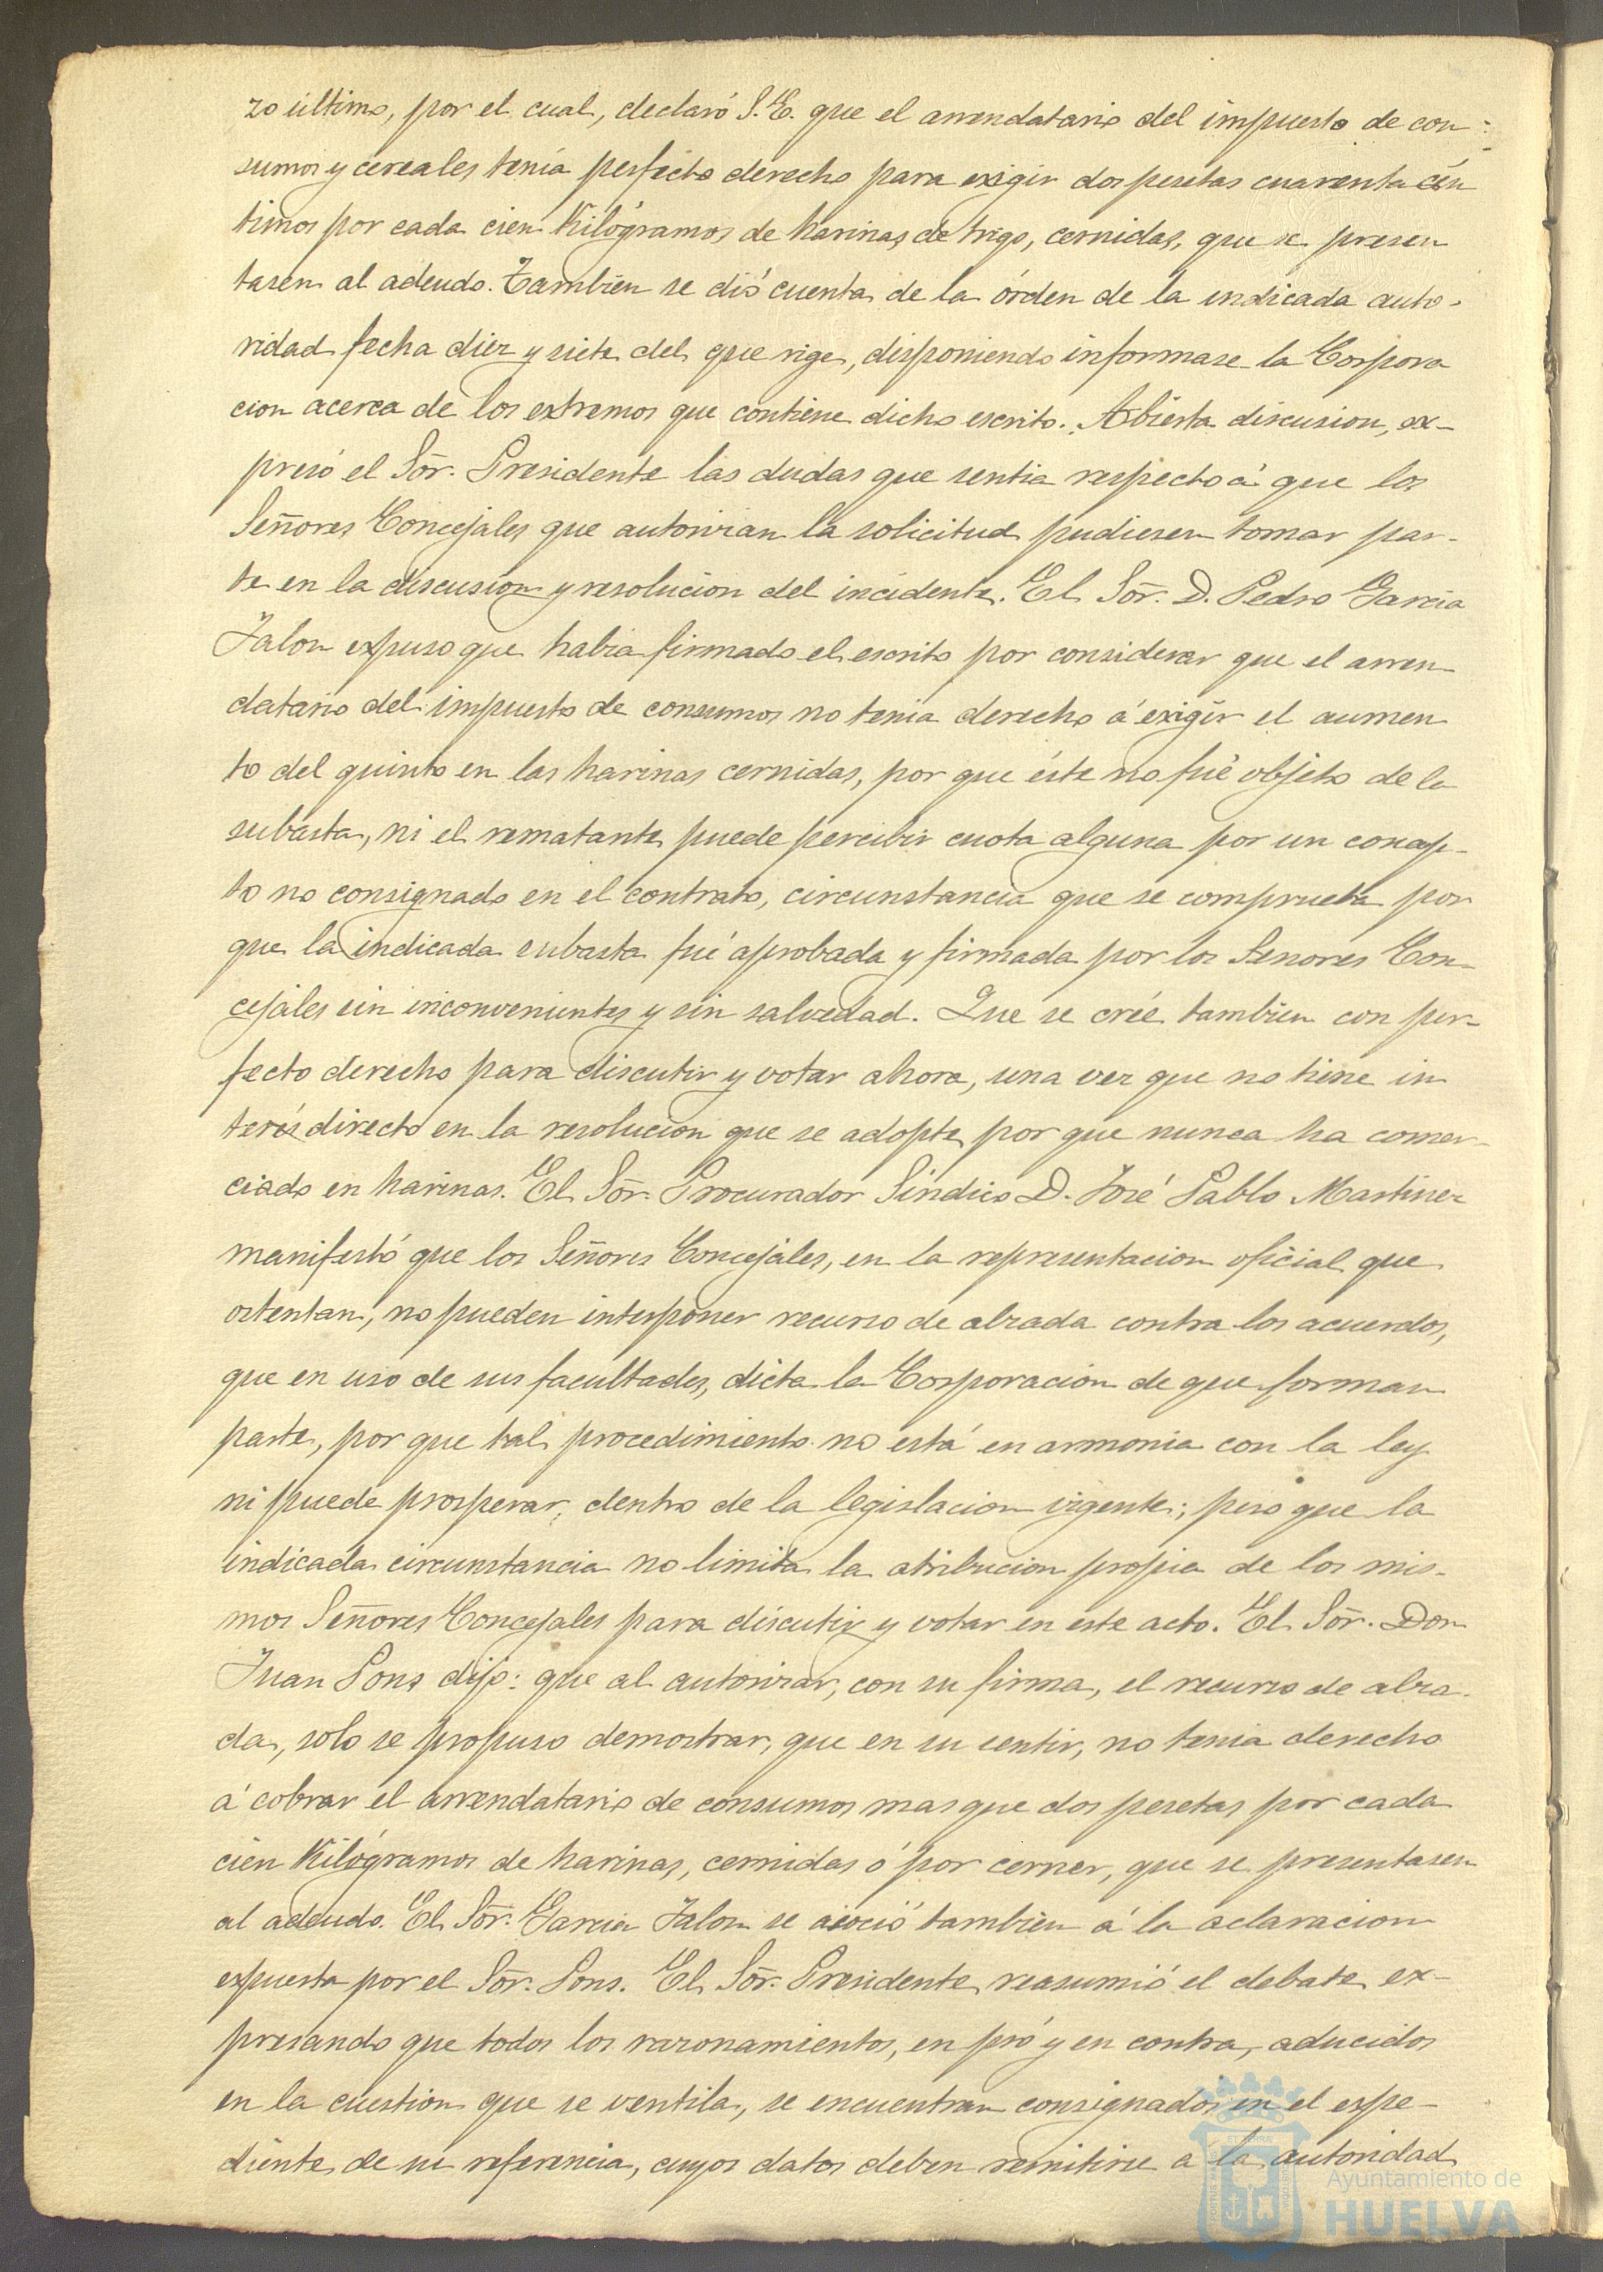 zo último, por el cual, declaró S. E. que el arrendatario del impuesto de con-
sumos y cereales tenía perfecto derecho para exigir dos pesetas cuarenta cén
timos por cada cien Kilógramos de harinas de trigo, cernidas, que se presen
tasen al adeudo. Tambien se dió cuenta de la órden de la indicada auto-
ridad fecha diez y siete del que rige, disponiendo informase la Corpora
cion acerca de los extremos que contiene dicho escrito. Abierta discusion, ex-
presó el Sõr. Presidente las dudas que sentia respecto á que los
Señores Concejales que autorizan la solicitud pudiesen tomar par-
te en la discusion y resolucion del incidente. El Sõr. D. Pedro Garcia
Jalon expuso que habia firmado el escrito por considerar que el arren-
datario del impuesto de consumos no tenia derecho á exigir el aumen
to del quinto en las harinas cernidas, por que éste no fué objeto de la
subasta, ni el rematante puede percibir cuota alguna por un concep-
to no consignado en el contrato, circunstancia que se comprueba por
que la indicada subasta fué aprobada y firmada por los Señores Con-
cejales sin inconvenientes y sin salvedad. Que se crée tambien con per-
fecto derecho para discutir y votar ahora, una vez que no tiene in
terés directo en la resolucion que se adopte por que nunca ha comer-
ciado en harinas. El Sõr. Procurador Síndico D. José Pablo Martinez
manifestó que los Señores Concejales, en la representacion oficial que
ostentan, no pueden interponer recurso de alzada contra los acuerdos,
que en uso de sus facultades, dicta la Corporacion de que forman
parte, por que tal procedimiento no está en armonia con la ley
ni puede prosperar, dentro de la legislacion vigente; pero que la
indicada circunstancia no limita la atribucion propia de los mis-
mos Señores Concejales para discutir y votar en este acto. El Sõr. Don
Juan Pons dijo: que al autorizar, con su firma, el recurso de alza-
da, solo se propuso demostrar, que en su sentir, no tenia derecho
á cobrar el arrendatario de consumos mas que dos pesetas por cada
cien Kilógramos de harinas, cernidas ó por cerner, que se presentasen
al adeudo. El Sõr. Garcia Jalon se asoció tambien á la aclaracion
expuesta por el Sõr. Pons. El Sõr. Presidente reasumió el debate ex-
presando que todos los razonamientos, en pró y en contra, aducidos
en la cuestion que se ventila, se encuentran consignados en el expe-
diente de su referencia, cuyos datos deben remitirse a la autoridad
Ayuntamiento de
HUELVA